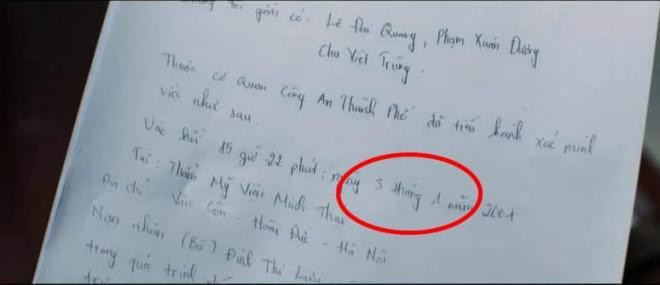 tôi gồm có: Lê Đại Quang, Phạm Xuân Dương
Chu Việt Trung.
Thuộc cơ quan Công An Thành Phố đã tiến hành xác minh
việc như sau.
Vào hồi 15 giờ 22 phút; ngày 3 tháng 1 năm 2001
Tại: Thẩm Mỹ Viện Minh Thư
Địa chỉ Vân Côn - Hoài Đức - Hà Nội
Nạn nhân (Bà) Đinh Thị
trong quá trình